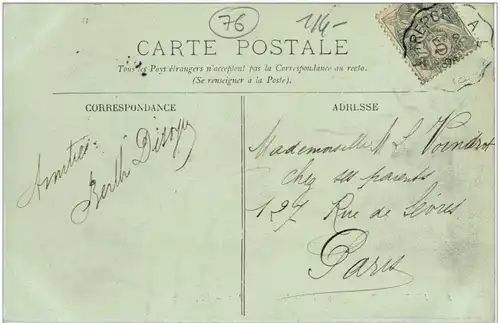 76
14-
CARTE POSTALE
Tous les Pays étrangers n'acceptent pas la Correspondance au recto.
(Se renseigner à la Poste).
CORRESPONDANCE
ADRESSE
Amitiés.
Berth
Mademoiselle M L Voindrot
chez ses parents
127 Rue de Sèvres
Paris